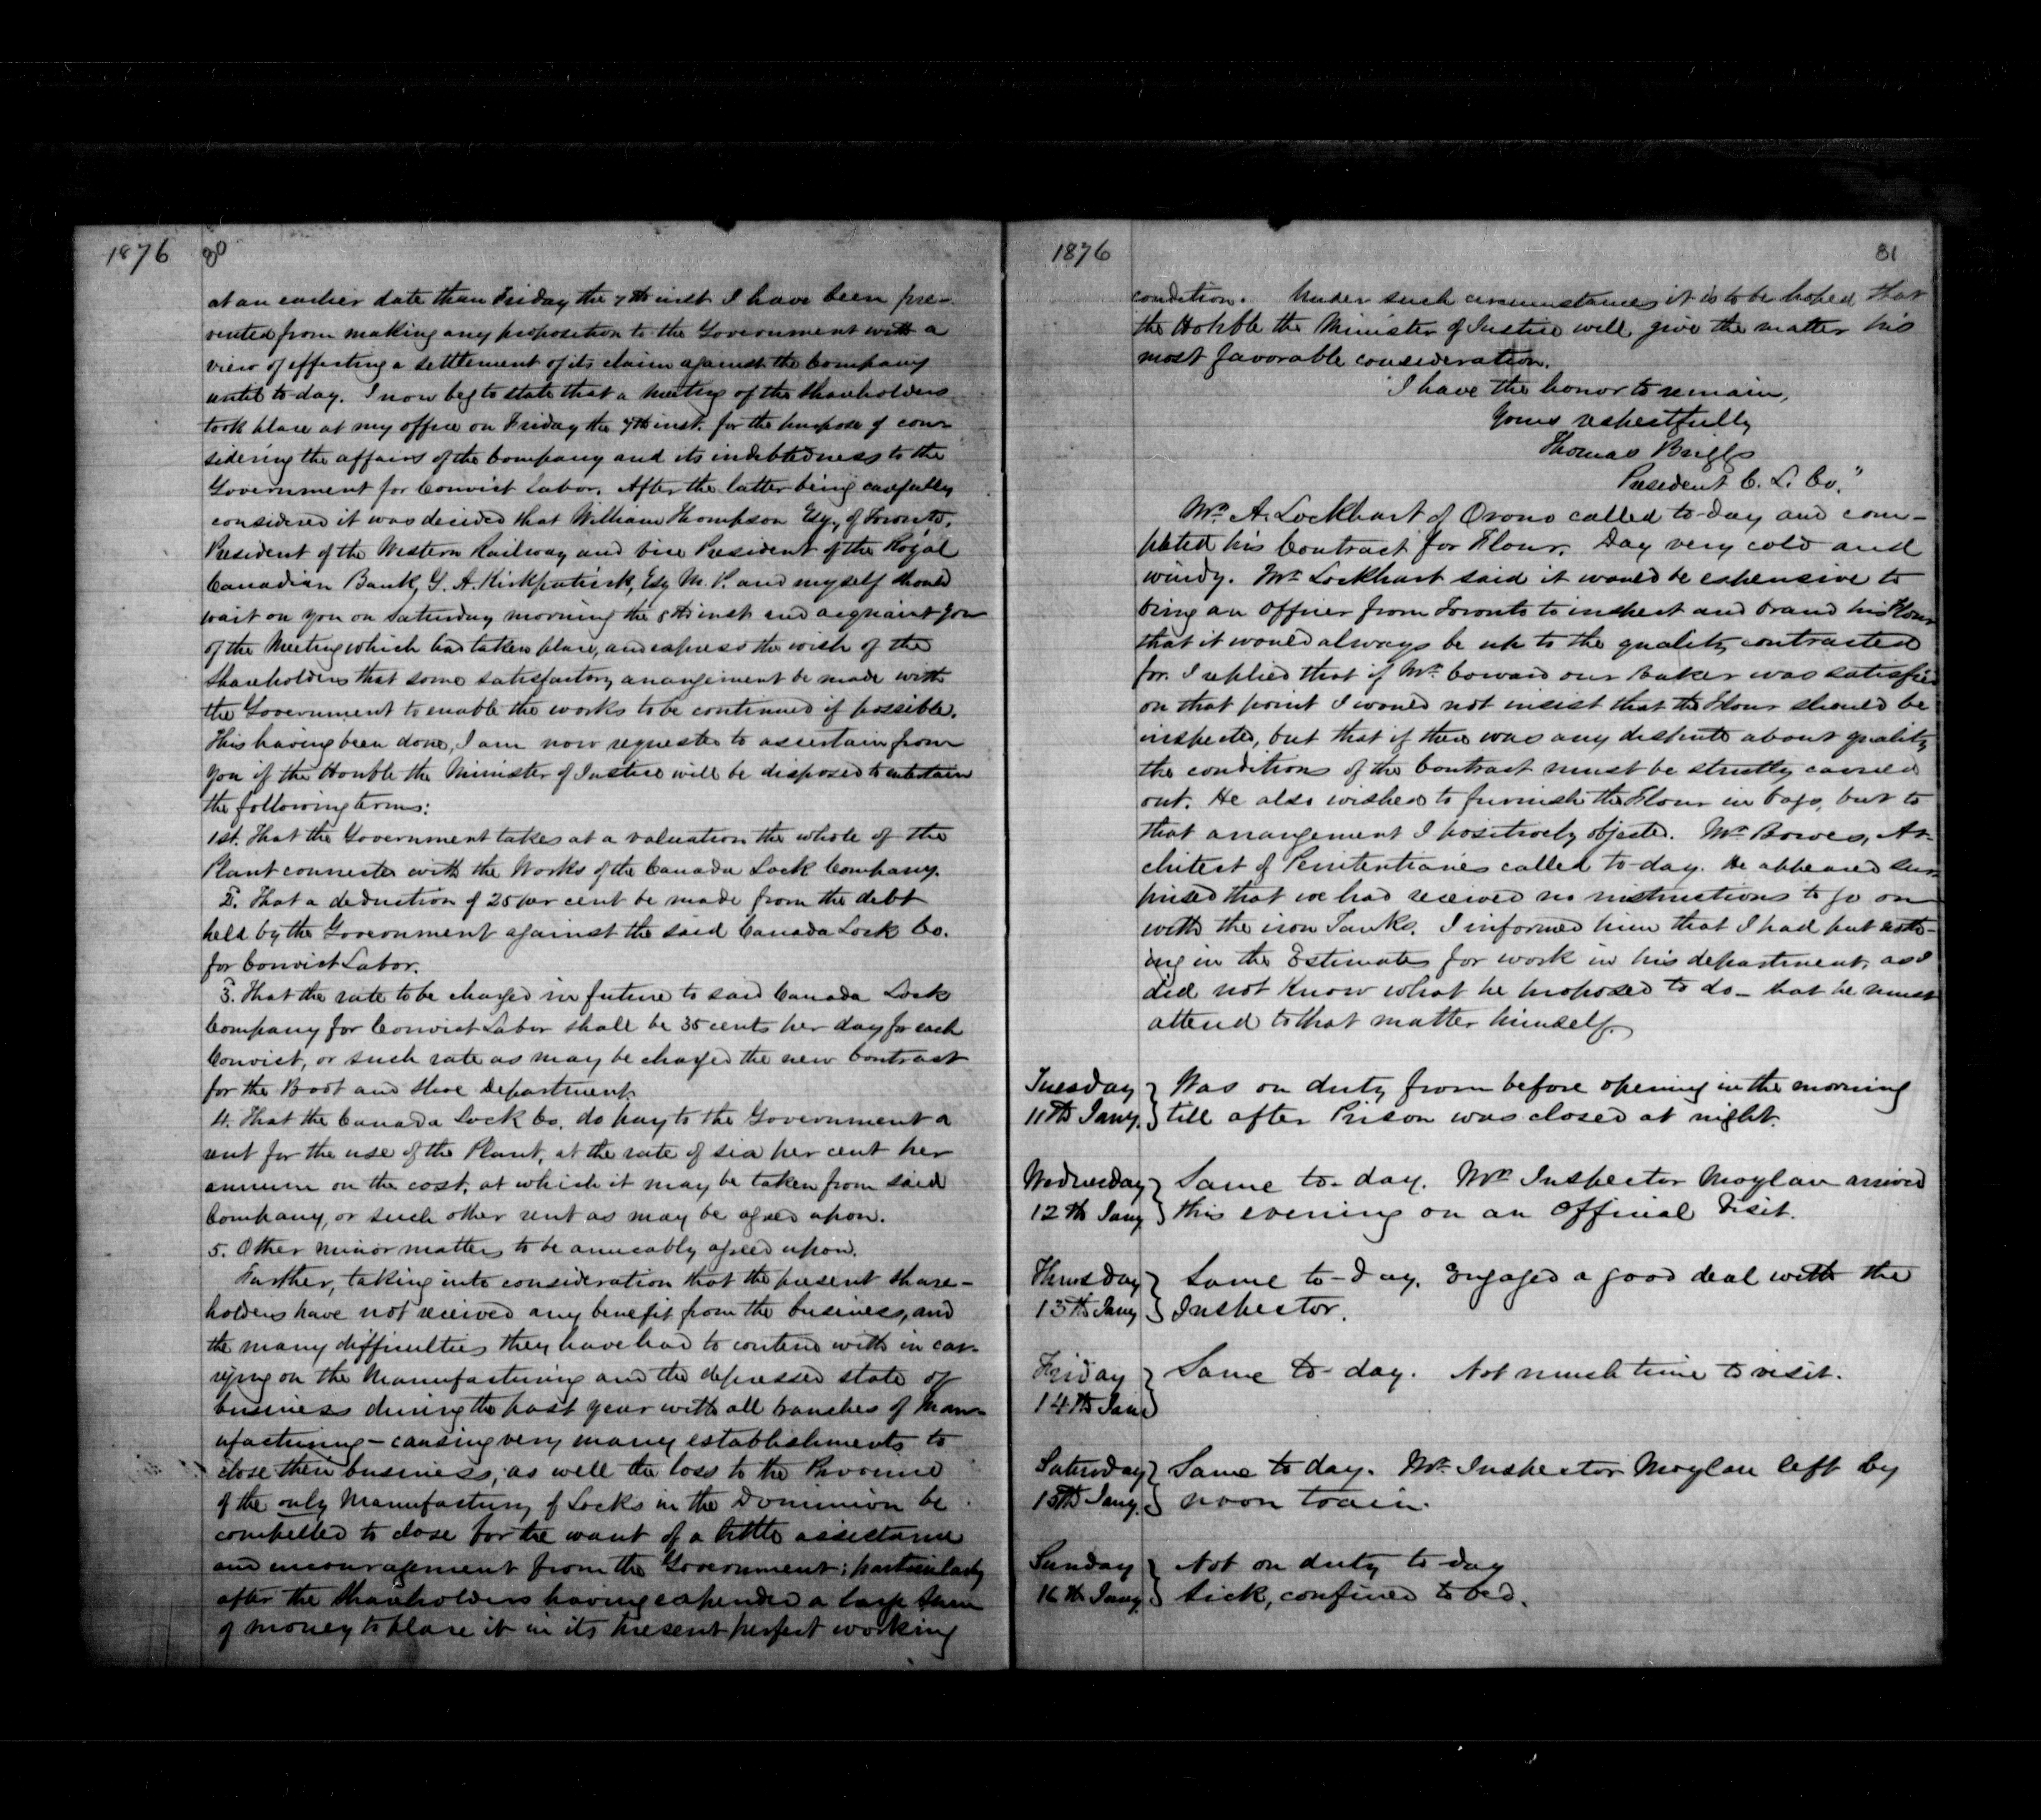 1876 80
at an earlier date than Friday the 7th inst I have been pre-
vented from making any proposition to the Government with a
view of effecting a settlement of its claim against the Company
until to-day. I now beg to state that a meeting of the shareholders
took place at my office on Friday the 7th inst. for the purpose of con-
sidering the affairs of the Company and its indebtedness to the
Government for Convict labor. After the latter being carefully
considered it was decided that William Thompson Esq., of Toronto,
President of the Western Railway and vice President of the Royal
Canadian Bank, G. A. Kirkpatrick, Esq M. P. and myself should
wait on you on Saturday morning the 8th inst and acquaint you
of the Meeting which had taken place, and express the wish of the
Shareholders that some satisfactory arrangement be made with
the Government to enable the works to be continued if possible.
This having been done, I am now requested to ascertain from
you if the Honble the Minister of Justice will be disposed to entertain
the following terms:
1st. That the Government takes at a valuation the whole of the
Plant connected with the Works of the Canada Lock Company.
2. That a deduction of 25 per cent be made from the debt
held by the Government against the said Canada Lock Co.
for Convict Labor.
3. That the rate to be charged in future to said Canada Lock
Company for Convict Labor shall be 35 cents per day for each
Convict, or such rate as may be charged the new Contract
for the Boot and Shoe Department.
4. That the Canada Lock Co. do pay to the Government a
rent for the use of the Plant, at the rate of six per cent per
annum on the cost, at which it may be taken from said
Company, or such other rent as may be agreed upon.
5. Other minor matters to be amicably agreed upon.
Further, taking into consideration that the present share-
holders have not received any benefit from the business, and
the many difficulties they have had to contend with in car-
rying on the Manufacturing and the depressed state of
business during the past year with all branches of Man-
ufacturing - causing very many establishments to
close their business, as well the loss to the Province
of the only Manufactury of Locks in the Dominion be
compelled to close for the want of a little assistance
and encouragement from the Government; particularly
after the Shareholders having expended a large sum
of money to place it in its present perfect working
1876 81
condition. Under such circumstances it is to be hoped that
the Honble the Minister of Justice will give the matter his
most favorable consideration.
I have the honor to remain,
Yours respectfully
Thomas Briggs
President C. L. Co."
Mr. A. Lockhart of Orono called to-day and com-
pleted his Contract for Flour. Day very cold and
windy. Mr. Lockhart said it would be expensive to
bring an Officer from Toronto to inspect and brand his Flour
that it would always be up to the quality contracted
for. I replied that if Mr. Coward our Baker was satisfied
on that point I would not insist that the Flour should be
inspected, but that if there was any dispute about quality
the conditions of the Contract must be strictly carried
out. He also wished to furnish the Flour in bags, but to
that arrangement I positively objected. Mr. Bowes, Ar-
chitect of Penitentiaries called to-day. He appeared sur-
prised that we had received no instructions to go on
with the iron Tanks. I informed him that I had put noth-
ing in the Estimates for work in his department, as I
did not know what he proposed to do - that he must
attend to that matter himself.
Tuesday } Was on duty from before opening in the morning
11th Jany. } till after Prison was closed at night.
Wednesday } Same to-day. Mr. Inspector Moylan arrived
12th Jany } this evening on an Official Visit.
Thursday } Same to-day. Engaged a good deal with the
13th Jany } Inspector.
Friday } Same to-day. Not much time to visit.
14th Jany }
Saturday } Same to day. Mr. Inspector Moylan left by
15th Jany. } noon train.
Sunday } Not on duty to-day
16th Jany. } Sick, confined to bed.